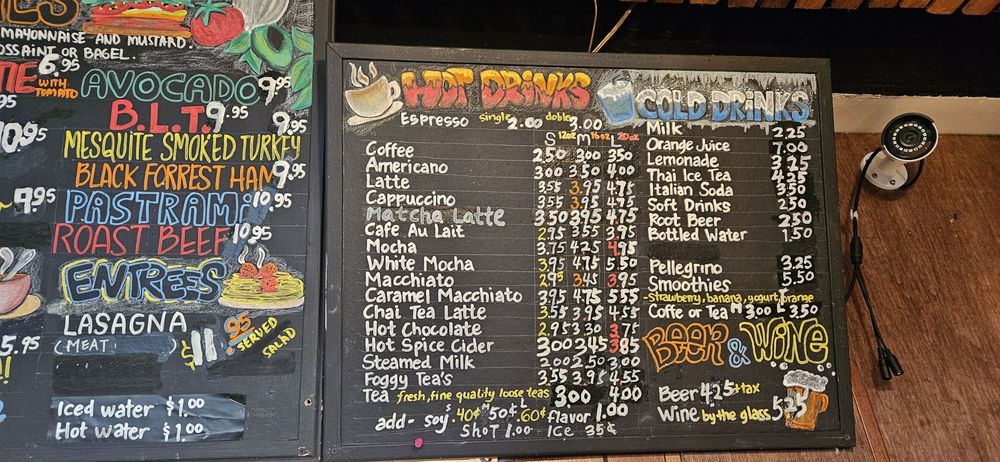 MAYONNAISE AND MUSTARD.
OR BAGEL.
6.95 WITH TOMATO
AVOCADO 9.95
B.L.T. 9.95
MESQUITE SMOKED TURKEY 9.95
10.95
BLACK FORREST HAM 9.95
7.95
PASTRAMI 10.95
ROAST BEEF 10.95
ENTREES
LASAGNA
(MEAT
$11.95 SERVED SALAD
5.95
Iced water $1.00
Hot water $1.00
HOT DRINKS
Espresso single 2.00 doble 3.00
S 12oz M 16oz L 20oz
Coffee 2.50 3.00 3.50
Americano 3.00 3.50 4.00
Latte 3.55 3.95 4.75
Cappuccino 3.55 3.95 4.75
Matcha Latte 3.50 3.95 4.75
Cafe Au Lait 2.95 3.55 3.95
Mocha 3.75 4.25 4.95
White Mocha 3.95 4.75 5.50
Macchiato 2.95 3.45 3.95
Caramel Macchiato 3.95 4.75 5.55
Chai Tea Latte 3.55 3.95 4.55
Hot Chocolate 2.95 3.30 3.75
Hot Spice Cider 3.00 3.45 3.85
Steamed Milk 2.00 2.50 3.00
Foggy Tea's 3.55 3.95 4.55
Tea fresh, fine quality loose teas 3.00 4.00
add- soy S .40¢ M 50¢ L .60¢ flavor 1.00
SHOT 1.00 ICE 35¢
COLD DRINKS
Milk 2.25
Orange Juice 7.00
Lemonade 3.25
Thai Ice Tea 4.25
Italian Soda 3.50
Soft Drinks 2.50
Root Beer 2.50
Bottled Water 1.50
Pellegrino 3.25
Smoothies 5.50
-strawberry, banana, yogurt, orange
Coffe or Tea M 3.00 L 3.50
BEER & WINE
Beer 4.25 + tax
Wine by the glass 5.25